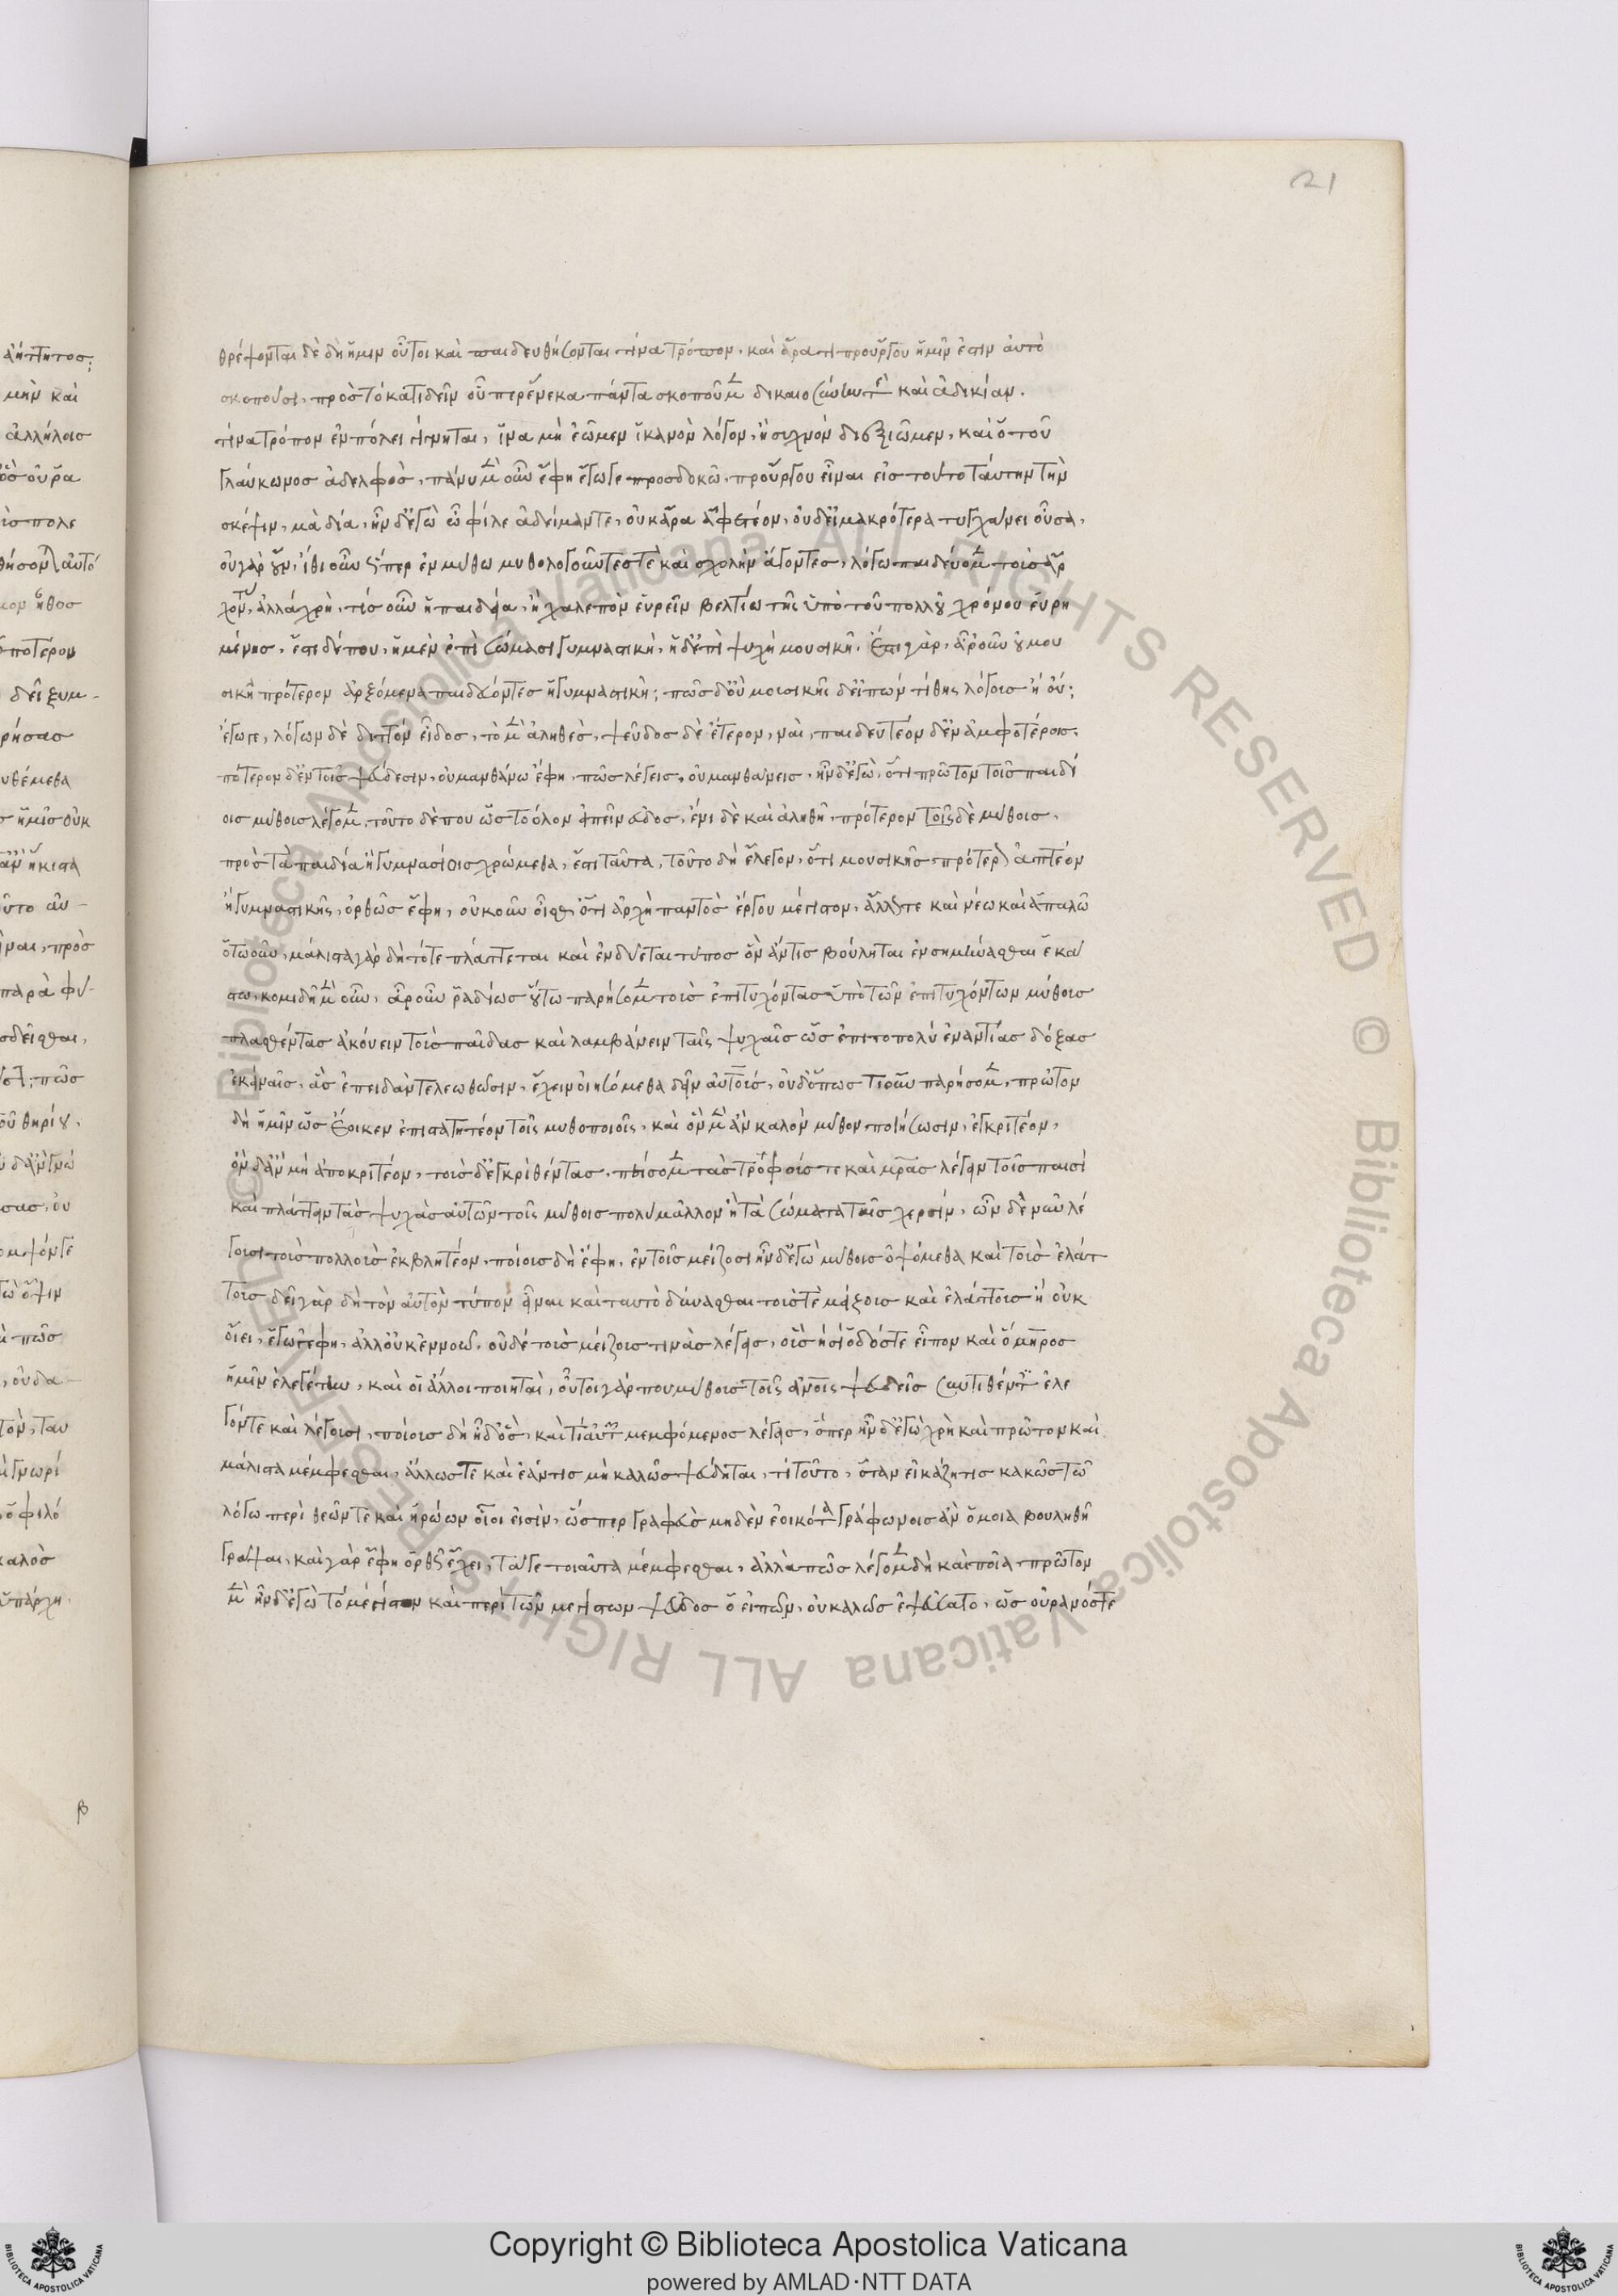 21
θρέψονται δὲ δὴ ἡμιν οὗτοι καὶ παιδευθήσονται τίνα τρόπον, καὶ ἆρα τι προὔργου ἡμῖν ἐστιν ἀυτὸ
σκοποῦσι, πρὸς τὸ κατιδεῖν οὗπερ ἕνεκα πάντα σκοποῦμεν δικαιοσύνην τὲ καὶ ἀδικίαν.
τίνα τρόπον ἐν πόλει γίγνηται, ἵνα μὴ ἐῶμεν ἱκανὸν λόγον, ἢ συχνὸν διεξίωμεν, καὶ ὁ τοῦ
Γλαύκωνοσ ἀδελφὸσ, πάνυ μὲν οὖν ἔφη ἔγωγε προσδοκῶ, προὔργου εἶναι εἰσ τοῦτο ταύτην τὴν
σκέψιν, μὰ δία, ἦν δ' ἐγὼ ὦ φίλε ἀδείμαντε, οὐκ ἄρα ἀφετέον, ὀυδ' εἰ μακρότερα τυγχάνει οὖσα,
οὐ γὰρ οὖν, ἴθι οὖν ὥσπερ ἐν μύθω μυθολογοῦντεσ τὲ καὶ σχολὴν ἄγοντεσ, λόγω παιδεύομεν τοὺσ ἄν
χον, ἀλλὰ χρὴ, τίσ οὖν ἡ παιδεία, ἢ χαλεπὸν εὑρεῖν βελτίω τῆς ὑπὸ τοῦ πολλοῦ χρόνου εὑρη
μένησ, ἔστι δέ που, ἡ μὲν ἐπὶ σώμασι γυμναστικὴ, ἡ δ' ἐπὶ ψυχῆ μουσικὴ, ἔστι γὰρ, ἆρ' οὖν οὐ μου
σικῆ πρότερον ἀρξόμεθα παιδεύοντεσ ἢ γυμναστικῆ; πῶσ δ' οὔ μουσικῆς δ' εἶπών τίθης λόγουσ ἢ ὀύ;
ἔγωγε, λόγων δὲ διττὸν εἶδοσ, τὸ μὲν ἀληθὲσ, ψεῦδοσ δὲ ἕτερον, ναὶ, παιδευτέον δ' ἐν ἀμφοτέροισ.
πότερον δ' ἐν τοῖσ ψεύδεσιν, ὀυ μανθάνω ἔφη, πῶσ λέγεισ, ὀυ μανθάνεισ, ἦν δ' ἐγὼ, ὅτι πρῶτον τοῖσ παιδί
οισ μύθουσ λέγομεν, τοῦτο δέ που ὡσ τὸ ὅλον εἰπεῖν ψεῦδοσ, ἔνι δὲ καὶ ἀληθῆ, πρότερον τοῖς δὲ μύθοισ,
πρὸσ τὰ παιδία ἢ γυμνασίοισ χρώμεθα, ἔστι ταῦτα, τοῦτο δὴ ἔλεγον, ὅτι μουσικῆσ πρότερον ἁπτέον
ἢ γυμναστικῆς, ὀρθῶσ ἔφη, οὐκοῦν οἶσθ' ὅτι ἀρχὴ παντὸσ ἔργου μέγιστον, ἄλλωστε καὶ νέω καὶ ἁπαλῶ
ὁτωοῦν, μάλιστα γὰρ δὴ τότε πλάττεται καὶ ἐνδύεται τύποσ ὃν ἄν τισ βούληται ἐνσημήνασθαι ἑκά
στω, κομιδῆ μὲν οὖν, ἆρ' οὖν ῥαδίωσ οὕτω παρήσομεν τοὺσ ἐπιτυχόντασ ὑπὸ τῶν ἐπιτυχόντων μύθουσ
πλασθέντασ ἀκούειν τοὺσ παῖδασ καὶ λαμβάνειν ταῖς ψυχαῖσ ὡσ ἐπιτοπολὺ ἐναντίασ δόξασ
ἐκείναισ, ἃσ ἐπειδὰν τελεωθῶσιν, ἔχειν ὀιησόμεθα δεῖν αὐτοὺσ, ὀυδ' ὁπωστιοῦν παρήσομεν, πρῶτον
δὴ ἡμῖν ὡσ ἔοικεν ἐπιστατητέον τοῖς μυθοποιοῖς, καὶ ὃν μὲν ἂν καλὸν μῦθον ποιήσωσιν, ἐγκριτέον,
ὃν δ' ἂν μὴ ἀποκριτέον, τοὺσ δ' ἐγκριθέντασ, πείσομεν τὰσ τροφούσ τε καὶ μρασ λέγειν τοῖσ παισὶ
καὶ πλάττειν τὰσ ψυχὰσ αὐτῶν τοῖς μύθοισ πολὺ μᾶλλον ἢ τὰ σώματα ταῖσ χερσίν, ὧν δὲ νῦν λέ
γουσι τοὺσ πολλοὺσ ἐκβλητέον, ποίουσ δὴ ἔφη, ἐν τοῖσ μείζοσι ἦν δ' ἐγὼ μύθοισ ὀψόμεθα καὶ τοὺσ ἐλάτ
τουσ δεῖ γὰρ δὴ τὸν αὐτὸν τύπον εἶναι καὶ ταυτὸ δύνασθαι τούσ τὲ μείζουσ καὶ ἐλάττουσ ἢ ὀυκ
οἴει, ἔγωγ' ἔφη, ἀλλ' ὀυκ ἐννοῶ, οὐδὲ τοὺσ μείζουσ τινὰσ λέγεισ, οὓσ ἡσίοδόσ τε εἶπον καὶ ὅμηροσ
ἡμῖν ἐλεγέτην, καὶ οἱ ἄλλοι ποιηταὶ, οὗτοι γάρ που μύθουσ τοῖς ἀνοις ψευδεῖσ συντιθέντεσ ἔλε
γόν τε καὶ λέγουσι, ποίουσ δὴ ἦδ' ὃσ, καὶ τί αὐτῶν μεμφόμενοσ λέγεισ, ὅπερ ἦν δ' ἐγὼ χρὴ καὶ πρῶτον καὶ
μάλιστα μέμφεσθαι, ἄλλωσ τε καὶ ἐάν τισ μὴ καλῶσ ψεύδηται, τί τοῦτο, ὅταν εἰκάζη τισ κακῶσ τῶ
λόγω περὶ θεῶν τε καὶ ἡρώων οἷοι ἐισὶν, ὥσπερ γραφεὺσ μηδὲν ἐοικότα γράφων οἷσ ἂν ὅμοια βουληθῆ
γράψαι, καὶ γὰρ ἔφη ὀρθῶσ ἔχει, τάγε τοιαῦτα μέμφεσθαι, ἀλλὰ πῶσ λέγομεν δὴ καὶ ποῖα, πρῶτον
μὲν ἦν δ' ἐγὼ τὸ μέγιστον καὶ περὶ τῶν μεγίστων ψεῦδοσ ὁ εἰπὼν, ὀυ καλῶσ ἐψεύσατο, ὡσ οὐρανόσ τε
β
Copyright © Biblioteca Apostolica Vaticana
powered by AMLAD·NTT DATA